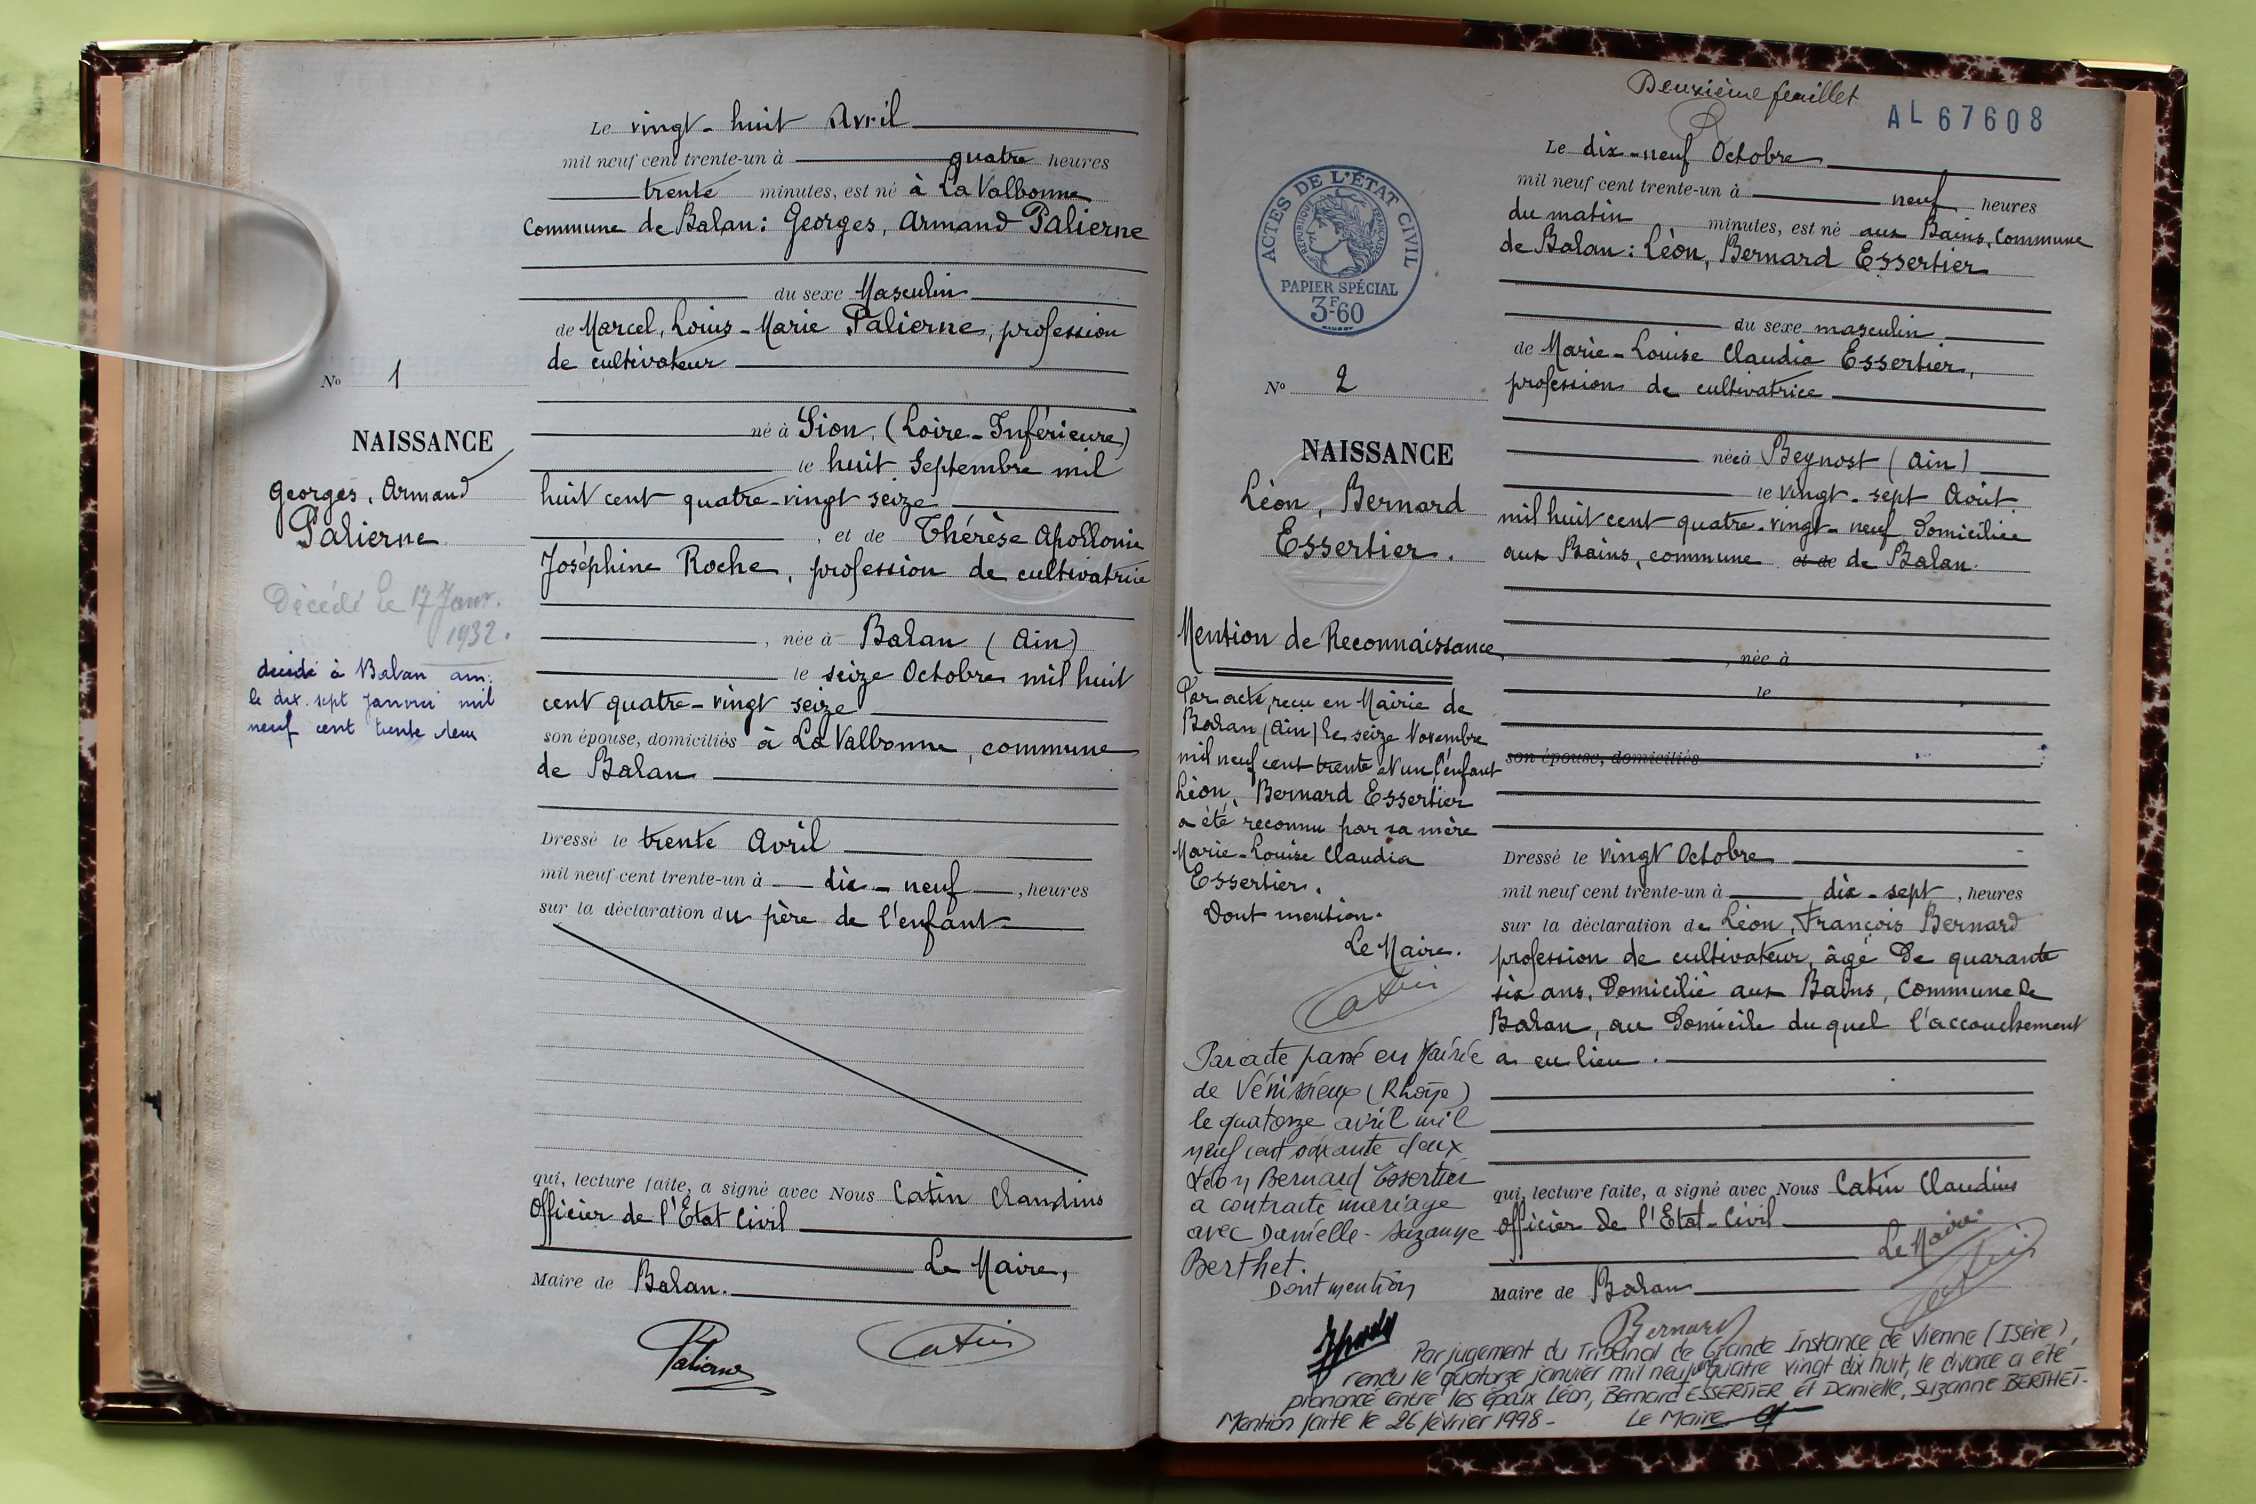 Le vingt-huit Avril
mil neuf cent trente-un à quatre heures
trente minutes, est né à La Valbonne
Commune de Balan: Georges, Armand Palierne
du sexe Masculin
de Marcel, Louis-Marie Palierne, profession
de cultivateur
né à Sion, (Loire-Inférieure)
le huit Septembre mil
huit cent quatre-vingt seize
, et de Thérèse Apollonie
Joséphine Roche, profession de cultivatrice
, née à Balan (Ain)
le seize Octobre mil huit
cent quatre-vingt seize
son épouse, domiciliés à La Valbonne, commune
de Balan
Dressé le trente Avril
mil neuf cent trente-un à dix-neuf, heures
sur la déclaration du père de l'enfant
qui, lecture faite, a signé avec Nous Catin Claudius
Officier de l'Etat Civil
Le Maire,
Maire de Balan.
Palierne
Catin
No 1
NAISSANCE
Georges, Armand
Palierne
Décédé le 17 Janv.
1932.
décédé à Balan ain:
le dix sept Janvier mil
neuf cent trente deux
Deuxième feuillet
AL 67608
ACTES DE L'ÉTAT CIVIL
RÉPUBLIQUE FRANÇAISE
PAPIER SPÉCIAL
3F60
No 2
NAISSANCE
Léon, Bernard
Essertier.
Mention de Reconnaissance
Par acte, reçu en Mairie de
Balan (Ain) le seize Novembre
mil neuf cent trente et un, l'enfant
Léon, Bernard Essertier
a été reconnu par sa mère
Marie-Louise Claudia
Essertier.
Dont mention.
Le Maire.
Catin
Par acte passé en Mairie
de Vénissieux (Rhône)
le quatorze avril mil
neuf cent soixante deux
Léon Bernard Essertier
a contracté mariage
avec Danielle-Suzanne
Berthet.
Dont mention
Le dix-neuf Octobre
mil neuf cent trente-un à neuf heures
du matin minutes, est né aux Bains, Commune
de Balan: Léon, Bernard Essertier
du sexe masculin
de Marie-Louise Claudia Essertier,
profession de cultivatrice
née à Beynost (Ain)
le vingt-sept Août
mil huit cent quatre-vingt-neuf Domiciliée
aux Bains, commune et de de Balan.
, née à
le
son épouse, domiciliés
Dressé le vingt Octobre
mil neuf cent trente-un à dix-sept, heures
sur la déclaration de Léon, François Bernard
profession de cultivateur, âgé De quarante
six ans, Domicilié aux Bains, Commune de
Balan, au Domicile duquel l'accouchement
a eu lieu.
qui, lecture faite, a signé avec Nous Catin Claudius
Officier de l'Etat-Civil
Le Maire.
Catin
Maire de Balan
Bernard
Par jugement du Tribunal de Grande Instance de Vienne (Isère),
rendu le quatorze janvier mil neuf cent quatre vingt dix huit, le divorce a été
prononcé entre les époux Léon, Bernard ESSERTIER et Danielle, Suzanne BERTHET.
Mention faite le 26 février 1998- Le Maire